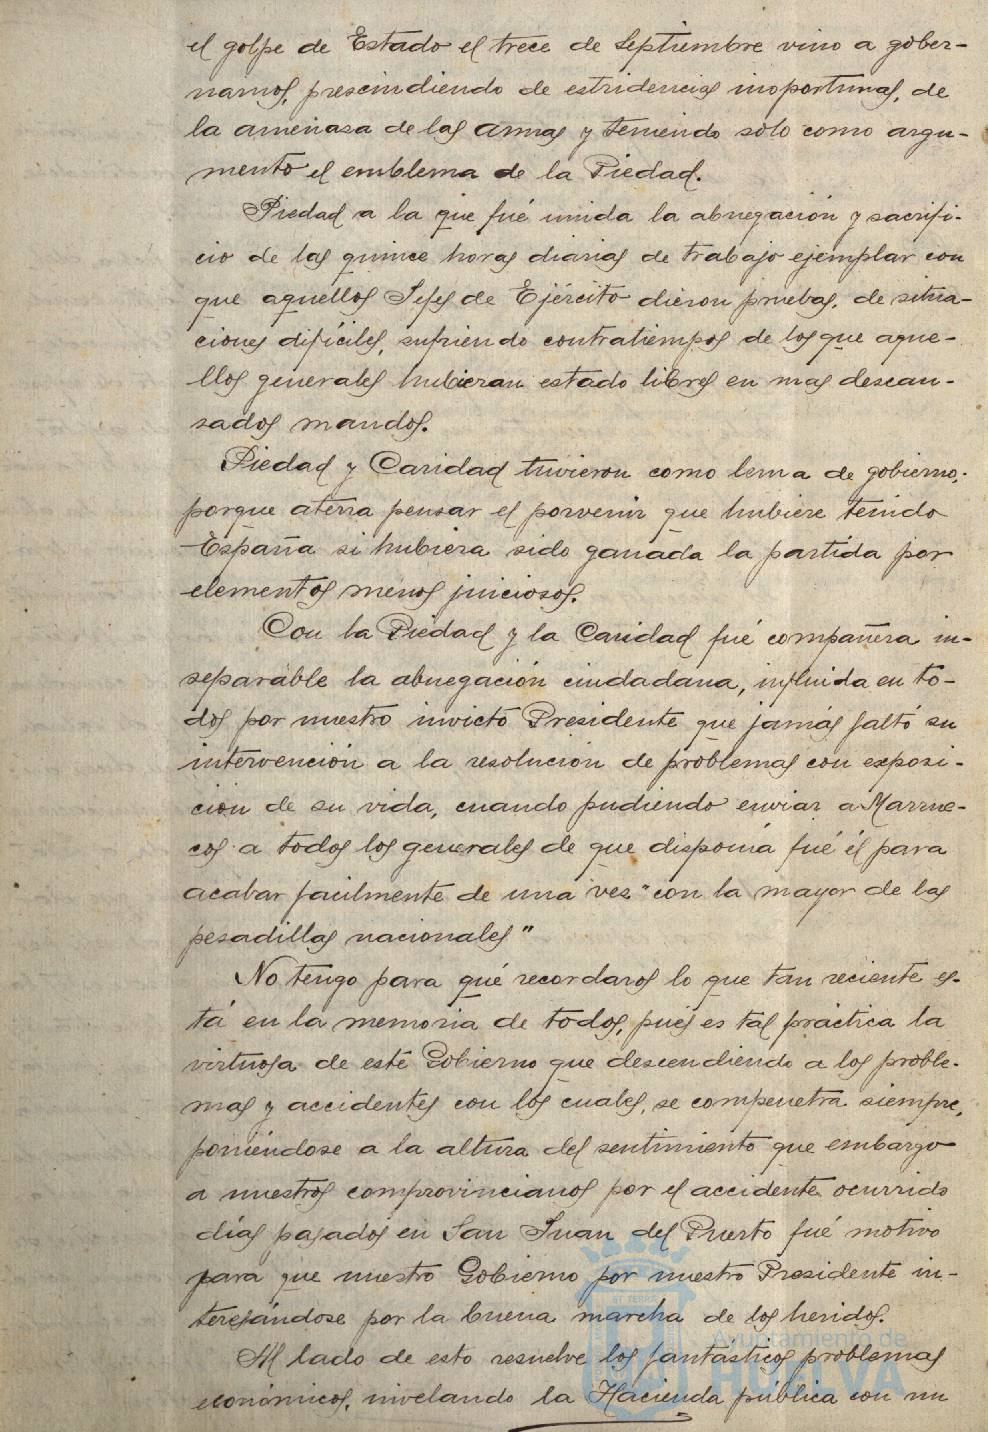 el golpe de Estado el trece de Septiembre vino a gober-
narnos, prescindiendo de estridencias inoportunas, de
la amenasa de las armas y teniendo sólo como argu-
mento el emblema de la Piedad.
Piedad a la que fué unida la abnegación y sacrifi-
cio de las quince horas diarias de trabajo ejemplar con
que aquellos Jefes de Ejército dieron pruebas, de situa-
ciones difíciles, sufriendo contratiempos de los que aque-
llos generales hubieran estado libres en mas descan-
sados mandos.
Piedad y Caridad tuvieron como lema de gobierno,
porque aterra pensar el porvenir que hubiere tenido
España si hubiera sido ganada la partida por
elementos menos juiciosos.
Con la Piedad y la Caridad fué compañera in-
separable la abnegación ciudadana, influida en to-
dos por nuestro invicto Presidente que jamás faltó su
intervención a la resolución de problemas con exposi-
ción de su vida, cuando pudiendo enviar a Marrue-
cos a todos los generales de que disponía fué él para
acabar facilmente de una ves "con la mayor de las
pesadillas nacionales"
No tengo para qué recordaros lo que tan reciente es-
tá en la memoria de todos, pues es tal práctica la
virtuosa de este Gobierno que descendiendo a los proble-
mas y accidentes con los cuales, se compenetra siempre,
poniéndose a la altura del sentimiento que embargo
a nuestros comprovincianos por el accidente ocurrido
días pasados en San Juan del Puerto fué motivo
para que nuestro Gobierno por nuestro Presidente in-
teresándose por la buena marcha de los heridos.
Al lado de esto resuelve los fantásticos problemas
económicos, nivelando la Hacienda pública con un
Ayuntamiento de
HUELVA